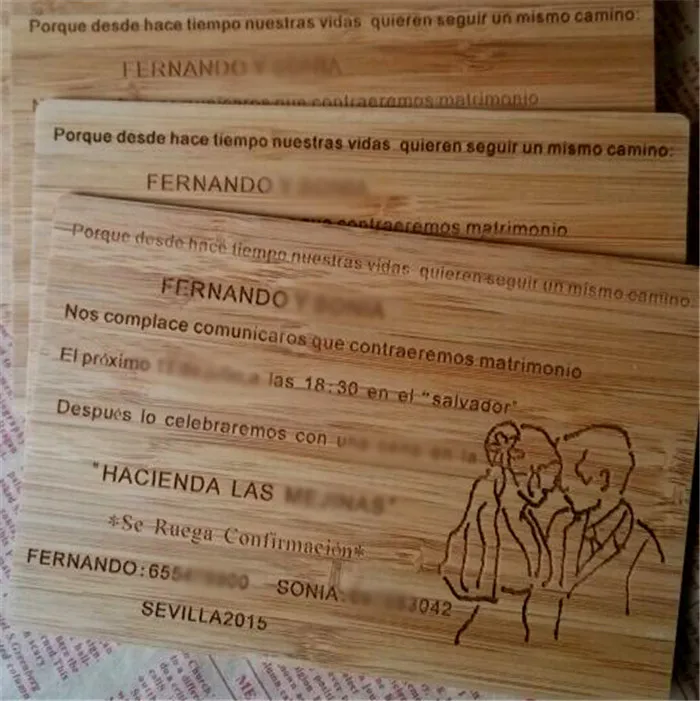 Porque desde hace tiempo nuestras vidas quieren seguir un mismo camino:
FERNANDO Y
contraeremos matrimonio
Porque desde hace tiempo nuestras vidas quieren seguir un mismo camino:
FERNANDO
contraeremos matrimonio
Porque desde hace tiempo nuestras vidas quieren seguir un mismo camino:
FERNANDO Y SONIA
Nos complace comunicaros que contraeremos matrimonio
El próximo a las 18:30 en el "salvador"
Después lo celebraremos con
"HACIENDA LAS MEJINAS"
*Se Ruega Confirmación*
FERNANDO:65 SONIA: 3042
SEVILLA2015